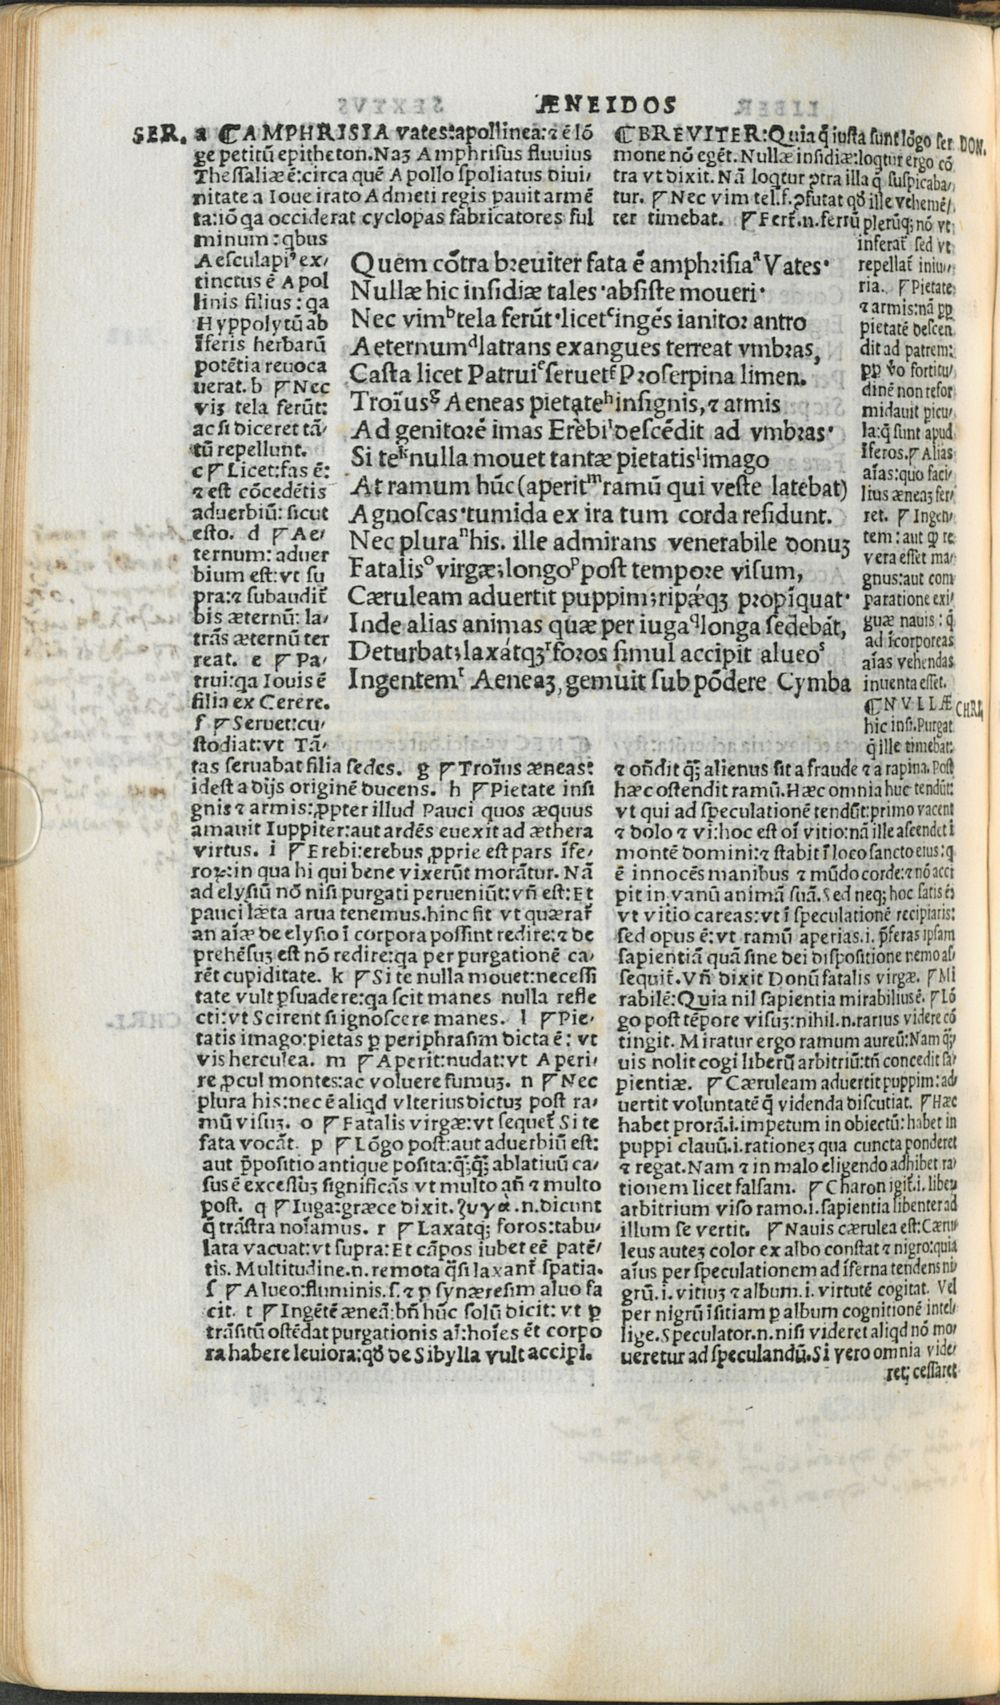 ÆNEIDOS
SER. a ¶AMPHRISIA vates: apollinea: ⁊ ē lō
ge petitū epitheton. Naʒ Amphrisus fluuius
Thessaliæ ē: circa quē Apollo spoliatus diui/
nitate a Ioue irato Admeti regis pauit armē
ta: iō qa occiderat cyclopas fabricatores ful
minum: qbus
Aesculapiꝰ ex/
tinctus ē Apol
linis filius: qa
Hyppolytū ab
Iferis herbarū
potētia reuoca
uerat. b ¶Nec
viʒ tela ferūt:
ac si diceret tā/
tū repellunt.
c ¶Licet: fas ē:
⁊ est cōcedētis
aduerbiū: sicut
esto. d ¶Ae/
ternum: aduer
bium est: vt su
pra: ⁊ subaudit̄
bis æternū: la/
trās æternū ter
reat. e ¶Pa/
trui: qa Iouis ē
filia ex Cerere.
f ¶Seruet: cu/
stodiat: vt Tā/
tas seruabat filia sedes. g ¶Troīus æneas:
idest a dijs originē ducens. h ¶Pietate insi
gnis ⁊ armis: ꝓpter illud Pauci quos æquus
amauit Iuppiter: aut ardēs euexit ad æthera
virtus. i ¶Erebi: erebus ꝓprie est pars īfe/
roꝝ: in qua hi qui bene vixerūt morātur. Nā
ad elysiū nō nisi purgati perueniūt: vn̄ est: Et
pauci læta arua tenemus. hinc fit vt quærat̄
an aīæ de elysio ī corpora possint redire: ⁊ de
prehēsuʒ est nō redire: qa per purgationē ca/
rēt cupiditate. k ¶Si te nulla mouet: necessi
tate vult ꝑsuadere: qa scit manes nulla refle
cti: vt Scirent si ignoscere manes. l ¶Pie/
tatis imago: pietas ꝑ periphrasim dicta ē: vt
vis herculea. m ¶Aperit: nudat: vt Aperi/
re ꝓcul montes: ac voluere fumuʒ. n ¶Nec
plura his: nec ē aliqd vlterius dictuʒ post ra/
mū visuʒ. o ¶Fatalis virgæ: vt sequet̄ Si te
fata vocāt. p ¶Lōgo post: aut aduerbiū est:
aut p̄positio antique posita: q̄ʒ q̄ʒ ablatiuū ca/
sus ē excessuʒ significās vt multo an̄ ⁊ multo
post. q ¶Iuga: græce dixit. ζυγα .n. dicunt
q̄ trāstra noīamus. r ¶Laxatqʒ foros: tabu/
lata vacuat: vt supra: Et cāpos iubet eē patē/
tis. Multitudine .n. remota q̄si laxant̄ spatia.
s ¶Alueo: fluminis. s. ⁊ ꝑ synæresim aluo fa
cit. t ¶Ingētē æneā: bn̄ hūc solū dicit: vt ꝑ
trāsitū ostēdat purgationis aī: hoīes ēt corpo
ra habere leuiora: qđ de Sibylla vult accipi.
Quem cōtra breuiter fata ē amphrisiaᵃ Vates·
Nullæ hic insidiæ tales· absiste moueri·
Nec vimᵇ tela ferūt· licetᶜ ingēs ianitor antro
Aeternumᵈ latrans exangues terreat vmbras,
Casta licet Patruiᵉ seruetᶠ Proserpina limen.
Troīusᵍ Aeneas pietateʰ insignis, ⁊ armis
Ad genitorē imas Erebiⁱ descēdit ad vmbras·
Si teᵏ nulla mouet tantæ pietatisˡ imago
At ramum hūc (aperitᵐ ramū qui veste latebat)
Agnoscas· tumida ex ira tum corda residunt.
Nec pluraⁿ his. ille admirans venerabile donuʒ
Fatalisᵒ virgæ; longoᵖ post tempore visum,
Cæruleam aduertit puppim; ripæqʒ propīquat·
Inde alias animas quæ per iuga^q longa sedebāt,
Deturbat; laxátqʒʳ foros simul accipit alueoˢ
Ingentemᵗ Aeneaʒ, gemuit sub pōdere Cymba
¶BREVITER: Quia q̄ iusta sunt lōgo ser DON.
mone nō egēt. Nullæ insidiæ: loqtur ergo cō
tra vt dixit. Nā loqtur ꝯtra illa q̄ suspicaba/
tur. ¶Nec vim tel. f. ꝯfutat qđ ille vehemē/
ter timebat. ¶Fert̄ .n. ferrū plerūqʒ nō vt
inferat̄ sed vt
repellat̄ iniu/
ria. ¶Pietate
⁊ armis: nā ꝓp
pietatē descen
dit ad patrem:
ꝓp v̄o fortitu/
dinē non refor
midauit picu/
la: q̄ sunt apud
Iferos. ¶Alias
aīas: quo faci/
lius æneaʒ fer/
ret. ¶Ingen/
tem: aut ꝙ re
vera esset ma/
gnus: aut com
paratione exi/
guæ nauis: q̄
ad īcorporeas
aīas vehendas
inuenta esset.
¶NVLLÆ CHRI.
hic insi. Purgat
q̄ ille timebat:
⁊ on̄dit qʒ alienus sit a fraude ⁊ a rapina. Post
hæc ostendit ramū. Hæc omnia huc tendūt:
vt qui ad speculationē tendūt: primo vacent
⁊ dolo ⁊ vi: hoc est oī vitio: nā ille ascendet ī
montē domini: ⁊ stabit ī loco sancto eius: q
ē innocēs manibus ⁊ mūdo corde: ⁊ nō acci
pit in vanū animā suā. Sed neqʒ hoc satis ē:
vt vitio careas: vt ī speculationē recipiaris:
sed opus ē: vt ramū aperias. i. p̄feras ipsam
sapientiā quā sine dei dispositione nemo as/
sequit̄. Vn̄ dixit Donū fatalis virgæ. ¶Mi
rabilē: Quia nil sapientia mirabilius ē. ¶Lō
go post tēpore visuʒ: nihil .n. rarius videre cō
tingit. Miratur ergo ramum aureū: Nam qʒ
uis nolit cogi liberū arbitriū: tn̄ concedit sa/
pientiæ. ¶Cæruleam aduertit puppim: ad/
uertit voluntatē q̄ videnda discutiat. ¶Hæc
habet prorā. i. impetum in obiectū: habet in
puppi clauū. i. rationeʒ qua cuncta ponderet
⁊ regat. Nam ⁊ in malo eligendo adhibet ra/
tionem licet falsam. ¶Charon igit̄. i. liberū
arbitrium viso ramo. i. sapientia libenter ad
illum se vertit. ¶Nauis cærulea est: Cæru/
leus auteʒ color ex albo constat ⁊ nigro: quia
aīus per speculationem ad īferna tendens ni/
grū. i. vitiuʒ ⁊ album. i. virtutē cogitat. Vel
per nigrū īsitiam ꝑ album cognitionē intel/
lige. Speculator .n. nisi videret aliqd nō mo/
ueretur ad speculandū. Si vero omnia vide/
ret; cessaret